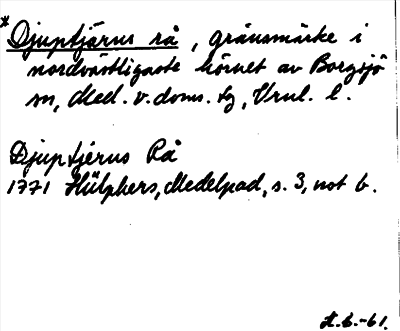 * Djuptjärns rå, gränsmärke i
nordvästligaste hörnet av Borgsjö
sn, Med. v. doms. tg, Vrnl. l.
Djuptjerns Rå
1771 Hülphers, Medelpad, s. 3, not b.
H.C.-61.